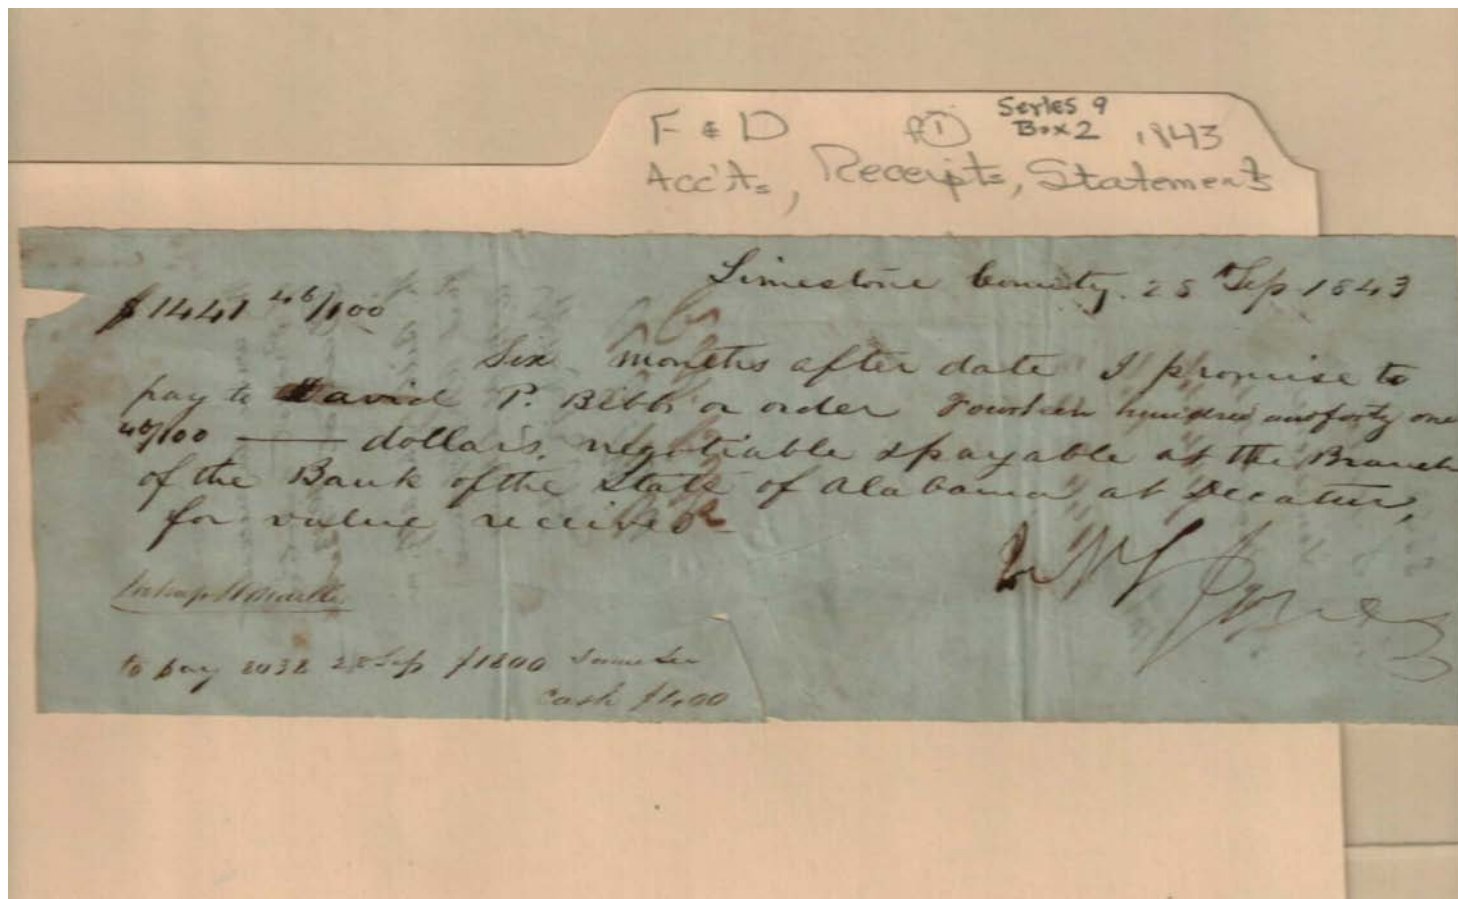 F & D f① Series 9
Box 2 1843
Acc'ts, Receipts, Statements
Limestone County. 28th Sep 1843
$1441 46/100
Six months after date I promise to
pay to David P. Bibb or order Fourteen hundred and forty one
46/100 —— dollars, negotiable & payable at the Branch
of the Bank of the State of Alabama at Decatur,
for value received
to pay 2038 28 Sep $1800 same
Cash $1.00